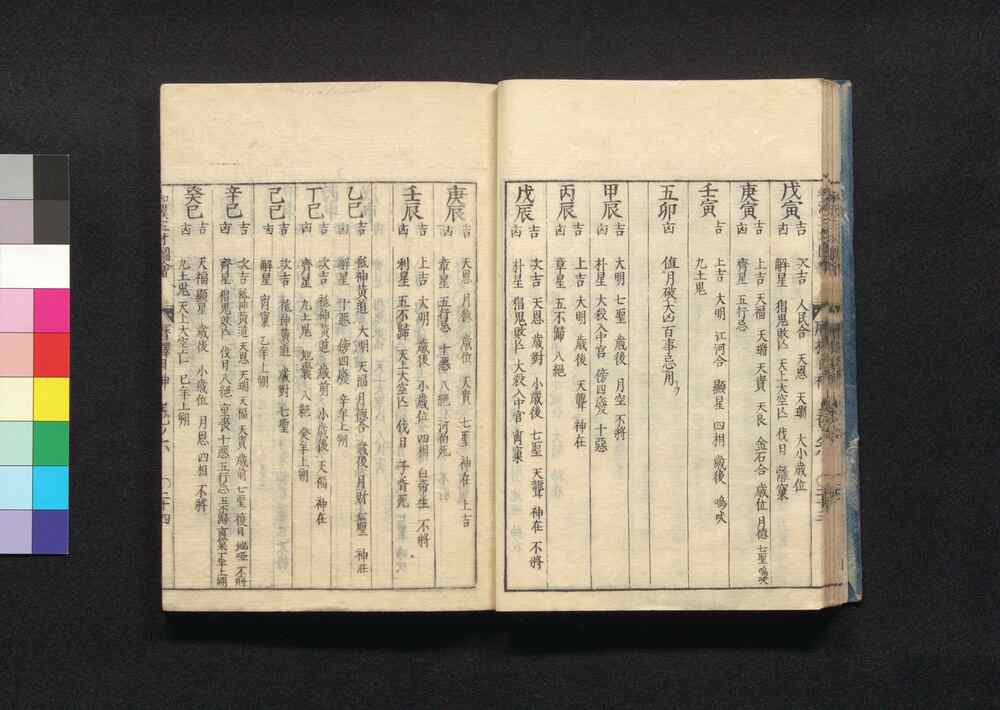 戊寅
吉 次吉 人民合 天恩 天瑞 大小歳位
凶 解星 猖鬼敗亡 天上大空亡 伐日 離窠
庚寅
吉 上吉 天福 天瑞 天貴 天良 金石合 歳位 月德 七聖 鳴吠
凶 齊星 五行忌
壬寅
吉 上吉 大明 江河合 顯星 四相 歳後 鳴吠
凶 九土鬼
五卯
吉
凶 値月破大凶百事忌用
甲辰
吉 大明 七聖 歳後 月空 不將
凶 朴星 大殺入中宮 傍四廢 十惡
丙辰
吉 上吉 大明 歳後 天聾 神在
凶 章星 五不歸 八絕
戊辰
吉 次吉 天恩 歳對 小歳後 七聖 天聾 神在 不將
凶 朴星 猖鬼敗亡 大殺入中宮
庚辰
吉 天恩 月 歳位 天貴 七聖 神在 上吉
凶 章星 五行忌 十惡 八絕 河伯死
壬辰
吉 上吉 大明 歳後 小歳位 四相 不將
凶 利星 五不歸 天上大空亡 伐日 子胥死
乙巳
吉 祗神黄道 大明 天福 月德合 歳後 月財 七聖 神在
凶 解星 十惡 傍四廢 辛年上朔
丁巳
吉 次吉 祗神黄道 歳前 小歳後 天福 神在
凶 齊星 九土鬼 八絕 癸年上朔
己巳
吉 次吉 祗神黄道 歳對 七聖
凶 解星 乙年上朔
辛巳
吉 次吉 祗神黄道 天恩 天瑞 天福 天貴 歳前 七聖 復日 地啞 不將
凶 齊星 猖鬼敗亡 伐日 八絕 重喪 十惡 五行忌 丁年上朔
癸巳
吉 天福 顯星 歳後 小歳位 月恩 四相 不將
凶 九土鬼 天上大空亡 巳年上朔